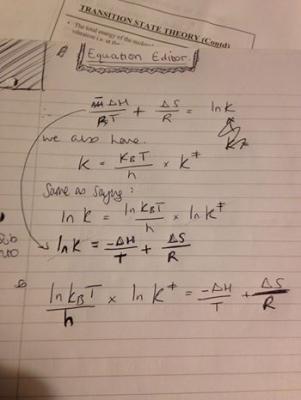 TRANSITION STATE THEORY (Contd)
• The total energy of the
Equation Editor.
-ΔH/RT + ΔS/R = ln k
we also have.
k = KBT/h × K‡
Same as saying:
ln k = ln KBT/h × ln K‡
ln k = -ΔH/T + ΔS/R
ln kBT/h × ln K‡ = -ΔH/T + ΔS/R